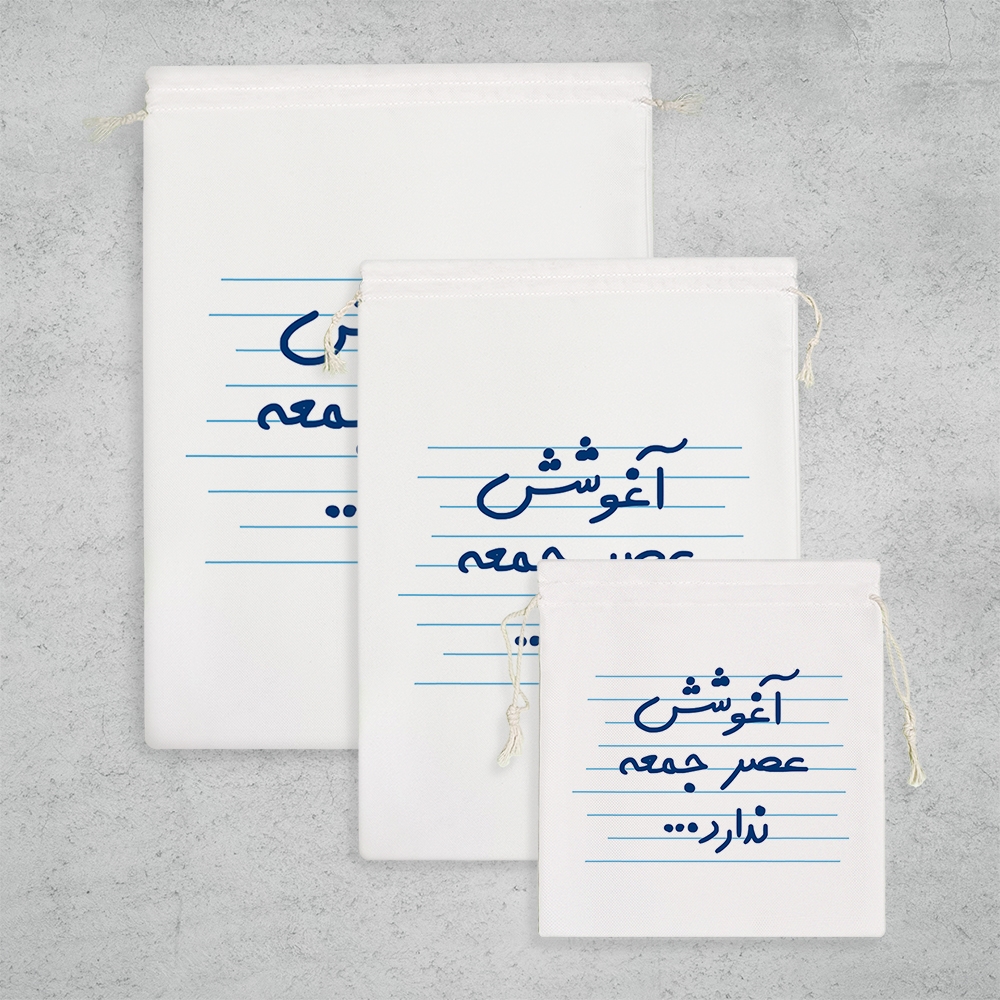 آغوشش
عصر جمعه
آغوشش
عصر جمعه
ندارد...